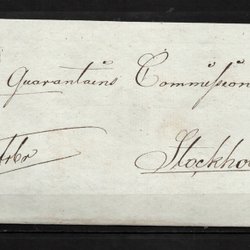 Quarantains Commission
Stockho